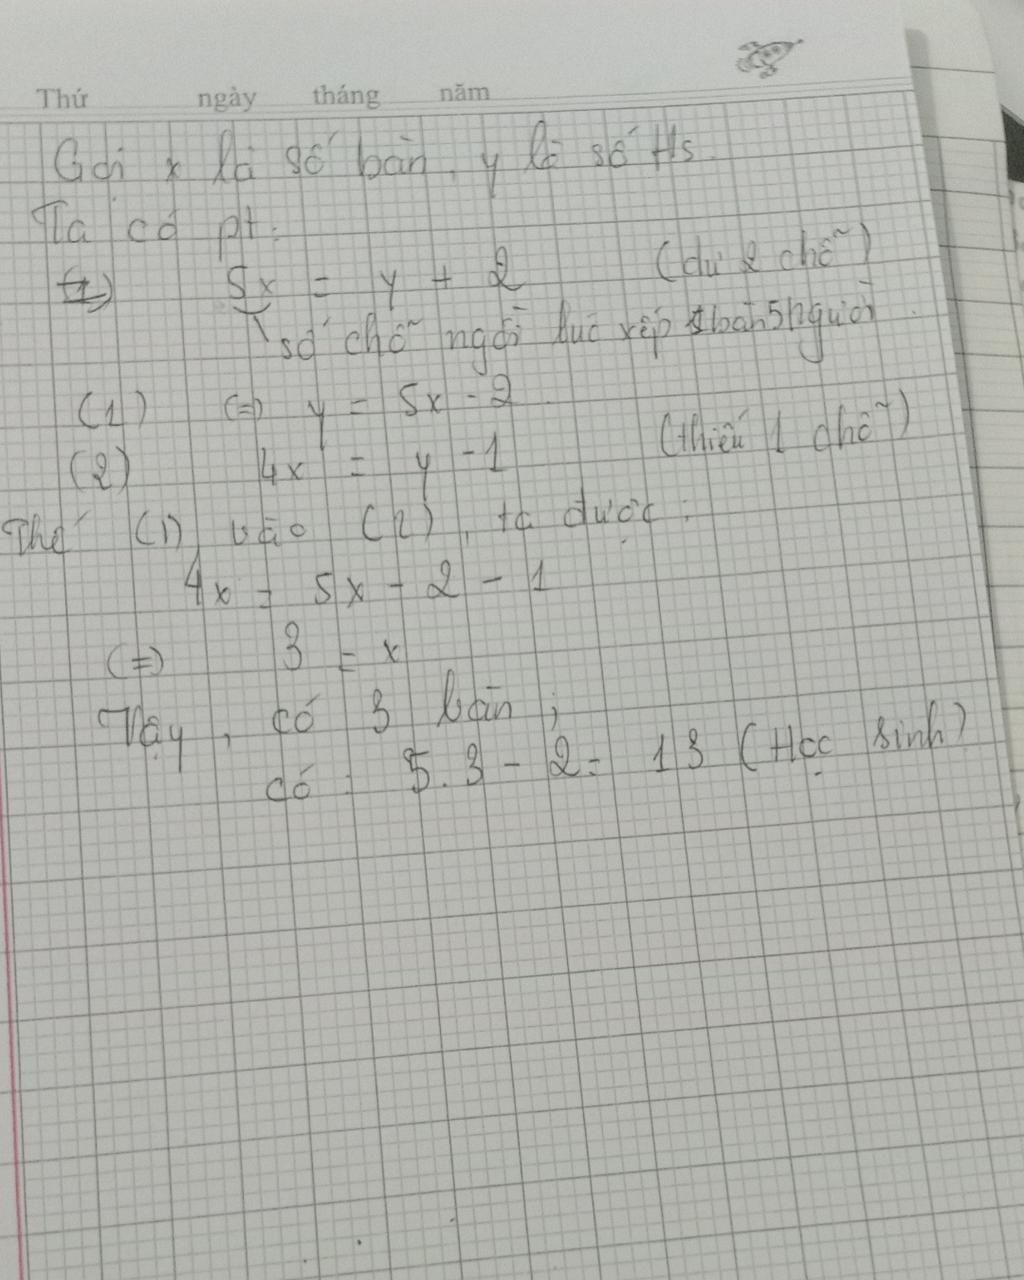 Thứ ngày tháng năm
Gọi x là số bàn, y là số Hs.
Ta có pt:
5x = y + 2 (dư 2 chỗ)
số chỗ ngồi lúc xếp 1 bàn 5 người.
(1) (=) y = 5x - 2
(2) 4x = y - 1 (thiếu 1 chỗ)
Thế (1) vào (2), ta được:
4x = 5x - 2 - 1
(=) 3 = x
Vậy, có 3 bàn;
có: 5.3 - 2 = 13 (Học sinh)